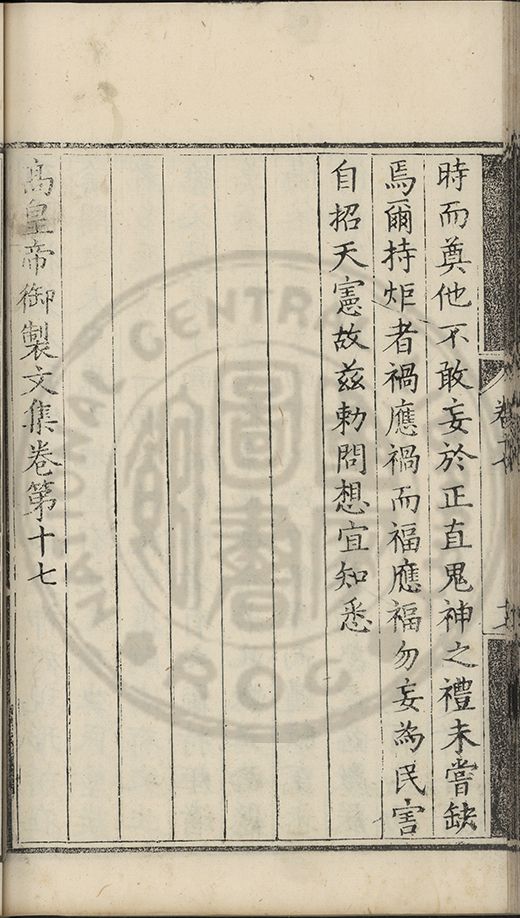 時而奠他不敢妄於正直鬼神之禮未嘗缺
焉爾持炬者禍應禍而福應福勿妄為民害
自招天憲故茲勅問想宜知悉
高皇帝御製文集卷第十七
NATIONAL CENTRAL
ROC
圖書